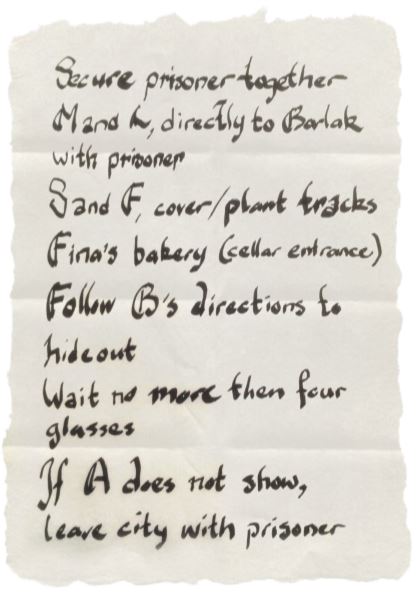 Secure prisoner together
M and L, directly to Barlak
with prisoner
S and F, cover/plant tracks
Fina's bakery (cellar entrance)
Follow B's directions to
hideout
Wait no more then four
glasses
If A does not show,
leave city with prisoner